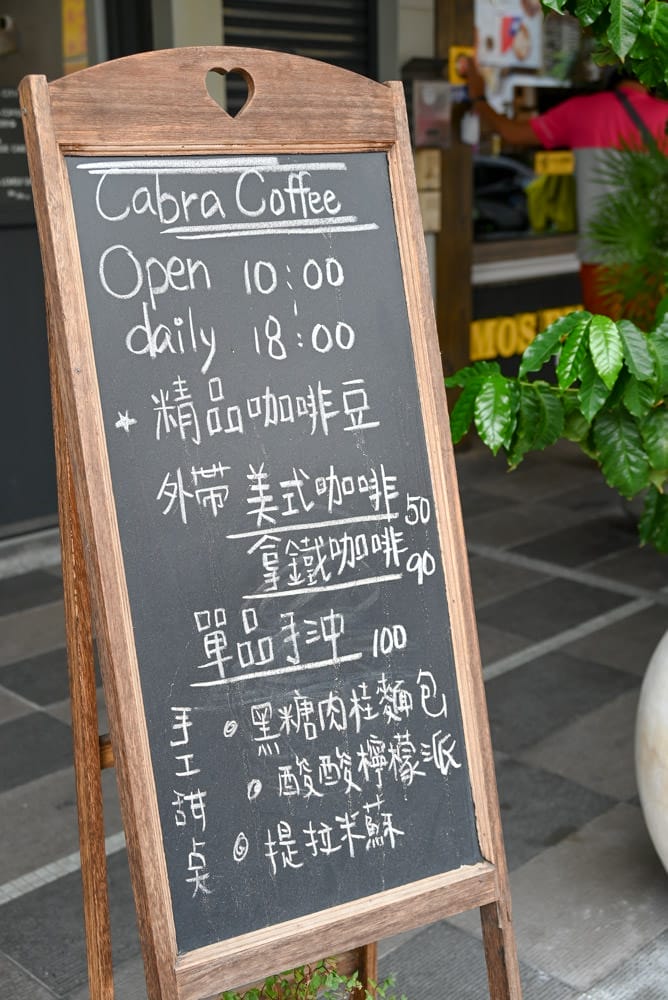 Cabra Coffee
Open 10:00
daily 18:00
精品咖啡豆
外帶 美式咖啡 50
拿鐵咖啡 90
單品手沖 100
手工甜点
黑糖肉桂麵包
酸酸檸檬派
提拉米蘇
MOS